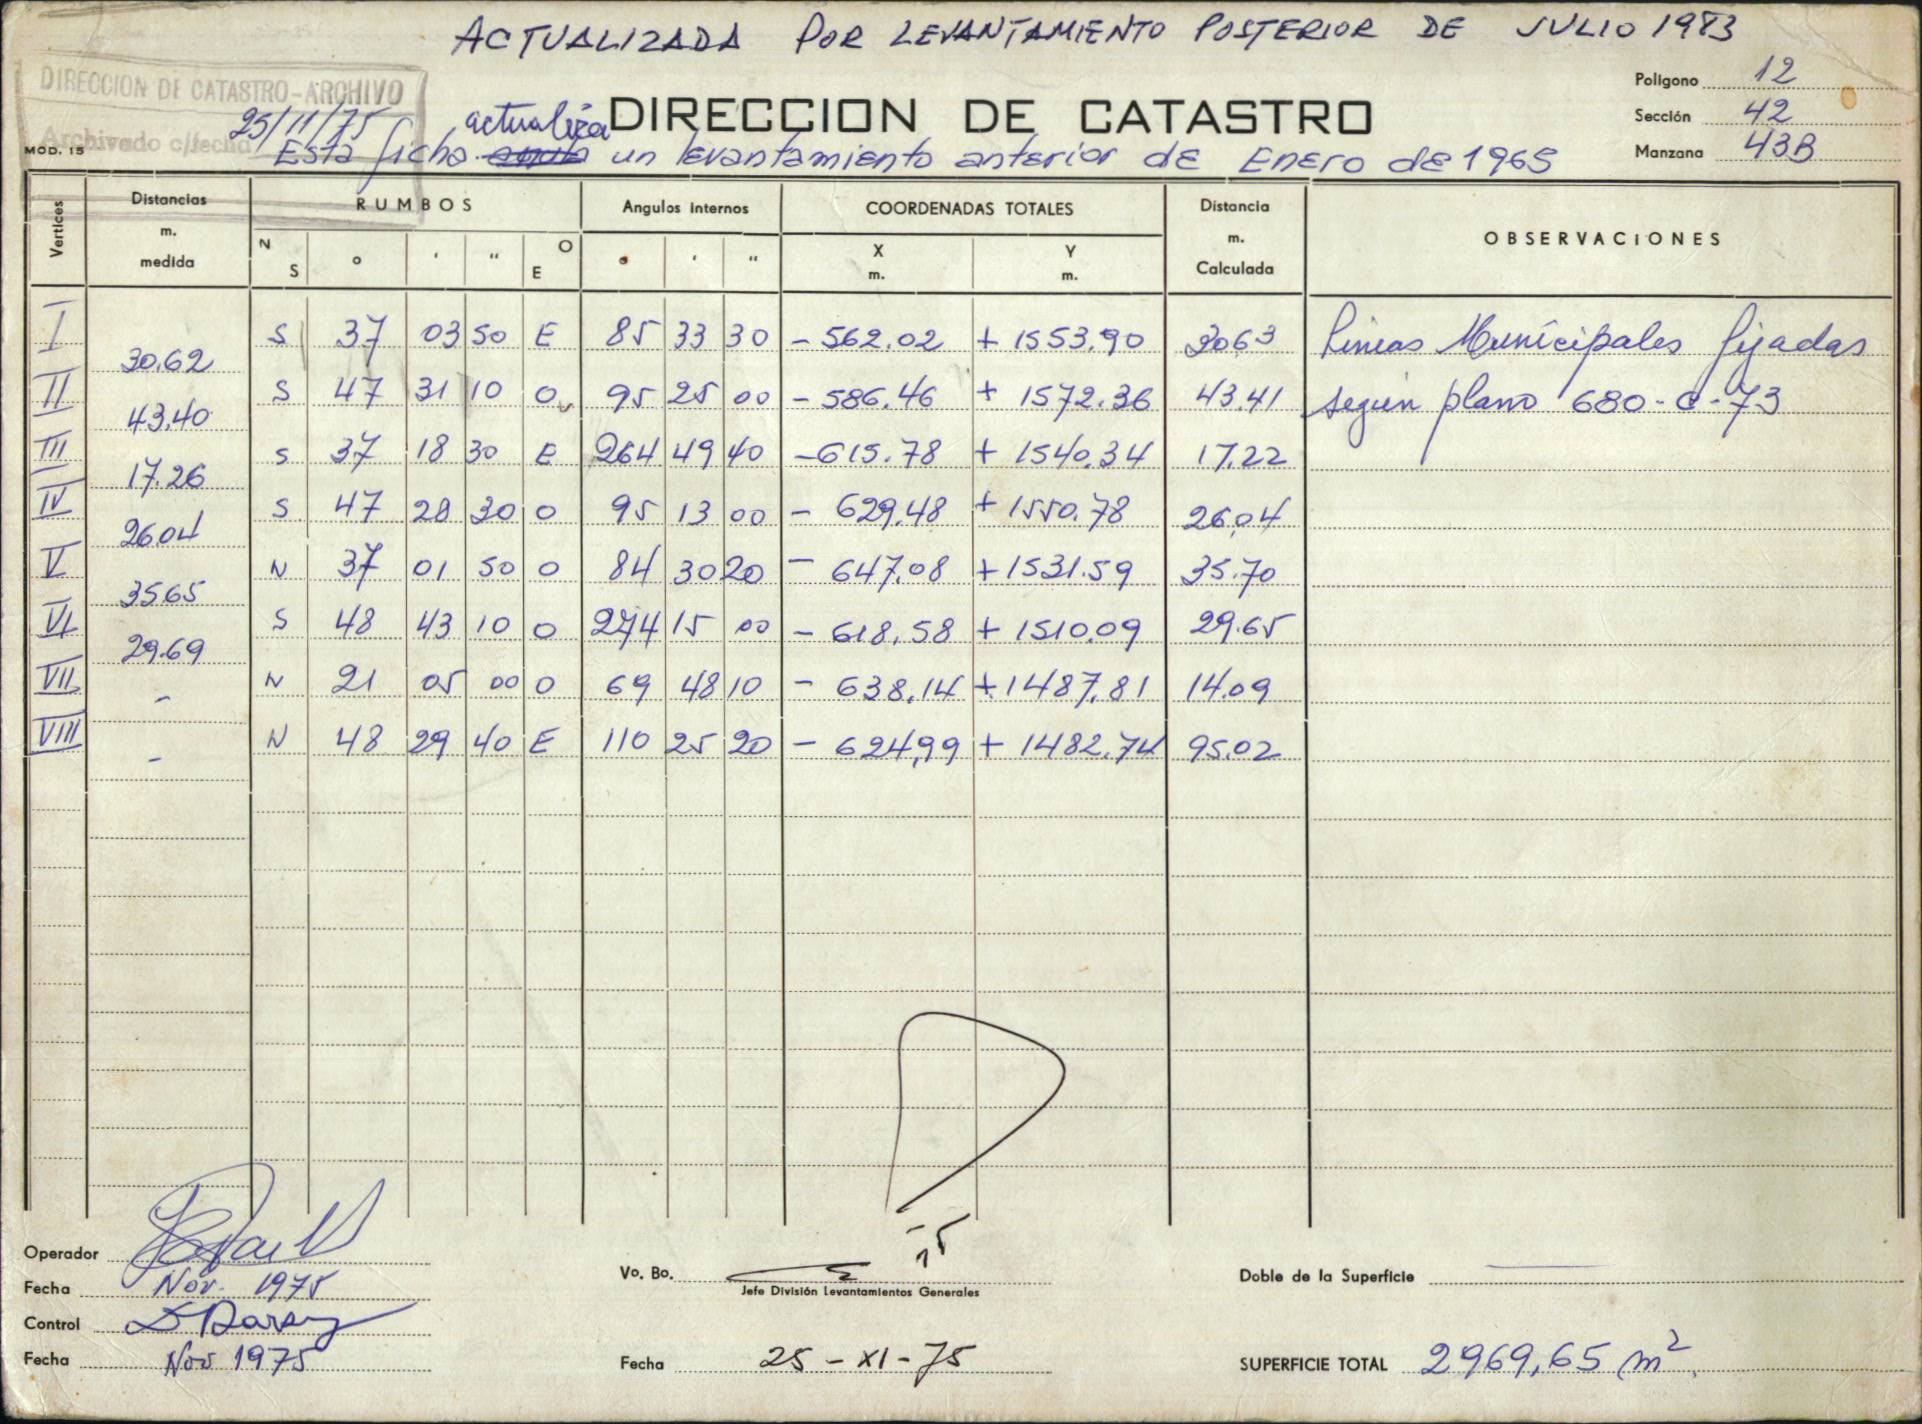 ACTUALIZADA POR LEVANTAMIENTO POSTERIOR DE JULIO 1983
DIRECCION DE CATASTRO-ARCHIVO
Archivado c/fecha 25/11/75
MOD. 15
DIRECCION DE CATASTRO
Poligono 12
Sección 42
Manzana 43B
actualiza
Esta ficha anula un levantamiento anterior de Enero de 1965
Vertices Distancias m. medida RUMBOS Angulos Internos COORDENADAS TOTALES Distancia m. Calculada OBSERVACIONES
N S ° ' " O E ° ' " X m. Y m.
I S 37 03 50 E 85 33 30 - 562.02 + 1553.90 30.63 Lineas Municipales fijadas
30.62
II S 47 31 10 O 95 25 00 - 586.46 + 1572.36 43.41 según plano 680-C-73
43.40
III S 37 18 30 E 264 49 40 - 615.78 + 1540.34 17.22
17.26
IV S 47 28 30 O 95 13 00 - 629.48 + 1550.78 26.04
26.04
V N 37 01 50 O 84 30 20 - 647.08 + 1531.59 35.70
35.65
VI S 48 43 10 O 274 15 00 - 618.58 + 1510.09 29.65
29.69
VII N 21 05 00 O 69 48 10 - 638.14 + 1487.81 14.09
-
VIII N 48 29 40 E 110 25 20 - 624,99 + 1482.74 95.02
-
Operador
Fecha Nov. 1975
Control
Fecha Nov 1975
Vo. Bo.
Jefe División Levantamientos Generales
Fecha 25-XI-75
Doble de la Superficie
SUPERFICIE TOTAL 2969,65 m2